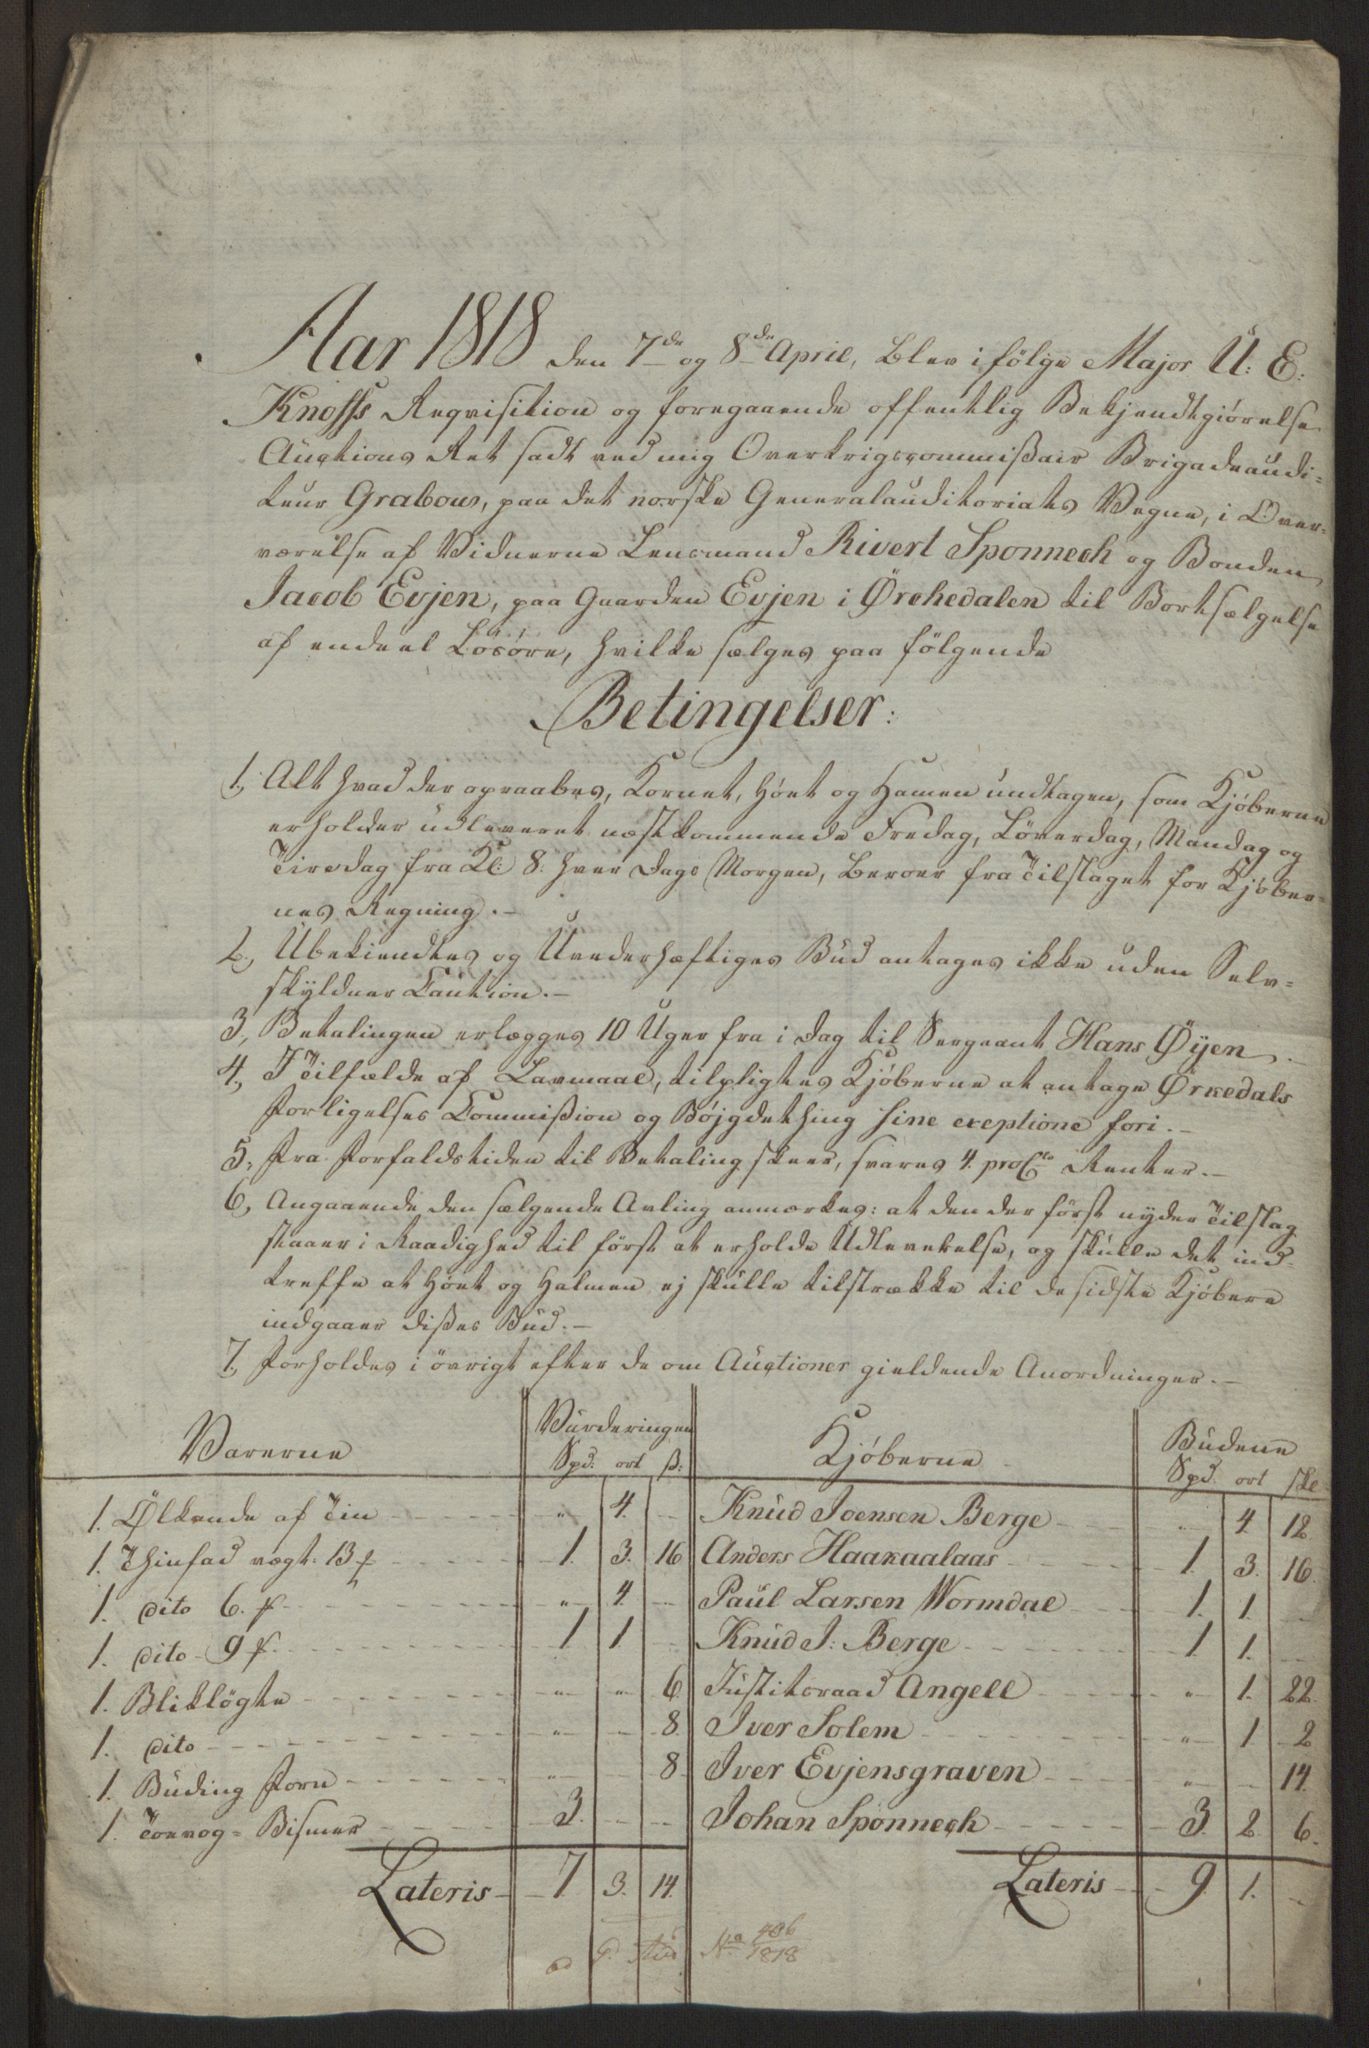 Aar 1818 den 7de og 8de April, blev ifølge Major U: E:
Knoffs Reqvisition og foregaaende offentlig Bekjendtgiørelse
Auctions Ret sadt ved mig Overkrigscommißair Brigadeaudi-
teur Grabow, paa det norske Generalauditoriats Vegne, i Over-
værelse af Vidnerne Lensmand Rivert Sponnech og Bonden
Jacob Evjen, paa Gaarden Evjen i Ørchedalen til Bortsælgelse
af endeel Løsøre, hvilke sælges paa følgende
Betingelser:
1, Alt hvad der opraabes, Kornet, Høet og Hamen undtagen, som Kjøberne
erholder udleveret næstkommende Fredag, Løverdag, Mandag og
Tiresdag fra Kl: 8. hver Dags Morgen, beroer fra Tilslaget for Kjøber-
nes Regning.-
2, Ubekiendtes og Uvederhæftiges Bud antages ikke uden Selv-
skyldner Caution.-
3, Betalingen erlægges 10 Uger fra i Dag til Sergeant Hans Øyen.
4, I Tilfælde af Lavmaal, tilpligtes Kjøberne at antage Ørkedals
Forligelses Commißion og Bøjgdething sine exeptione fori.-
5, Fra Forfaldstiden til Betaling skeer, svares 4. proCto Renter.-
6, Angaaende den sælgende Avling anmærkes: at den der først nyder Tilslag
staaer i Raadighed til først at erholde Udleverelse, og skulle det ind-
treffe at Høet og Halmen ej skulle tilstrække til de sidste Kjøbere
indgaaer dißes Bud.-
7, Forholdes i øvrigt efter de om Auctioner gieldende Anordninger.-
Varerne Vurderingen Kjøberne Budene
Spd. ort ß: Spd. ort skl
1. Ølkande af Tin " 4. - Knud Joensen Berge " 4. 12
1. Thinfad vægt. 13 p 1. 3. 16 Anders Haakaalaas 1. 3. 16.
1. dito 6. p " 4 - Paul Larsen Wormdal 1. 1. -
1. dito 9 p. 1 1 - Knud J: Berge 1 1. -
1. Bliklögte " " 6 Justitsraad Angell " 1. 22.
1. dito " - 8. Iver Solem " 1 2
1. Buding Form " - 8 Iver Evjensgraven " - 14.
1. Bismer 3. - - Johan Sponnech 3. 2. 6.
Lateris 7 3. 14. Lateris 9. 1. -
No 406/1818